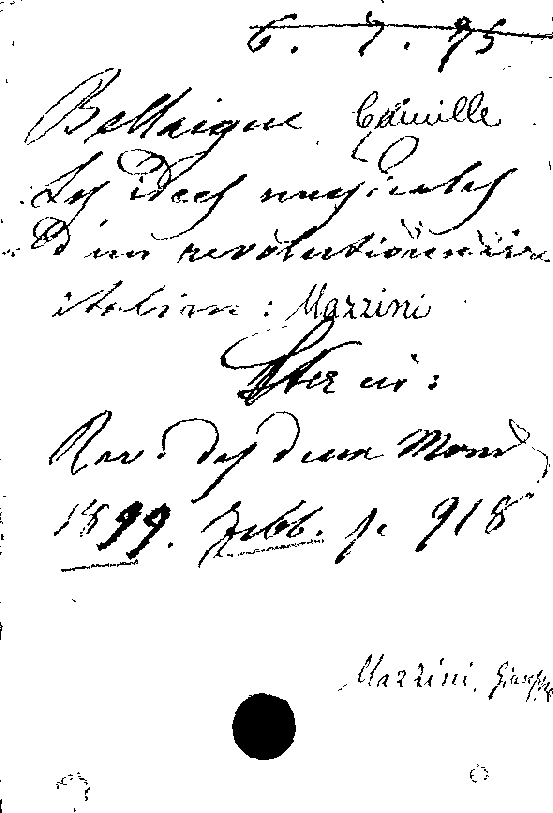 6. 7. 95
Bellaigue Camille
Les idees musicales
d'un revolutionnaire
italien: Mazzini
in:
Rev. des deux Mond
1899. Febb. p. 918
Mazzini, Giuseppe